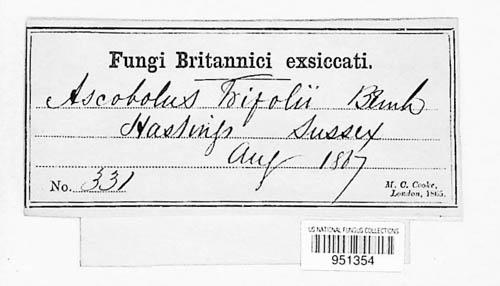 Fungi Britannici exsiccati.
Ascobolus Trifolii Bernh
Hastings Sussex
Aug 1867
No. 331
M. C. Cooke,
London, 1865.
US NATIONAL FUNGUS COLLECTIONS
951354